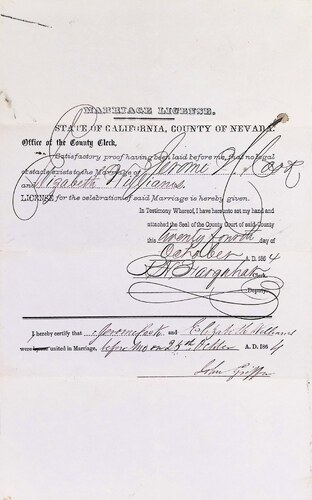 MARRIAGE LICENSE.
STATE OF CALIFORNIA, COUNTY OF NEVADA.
Office of the County Clerk,
Satisfactory proof having been laid before me, that no legal
obstacle exists to the Marriage of Jerome
and Elizabeth Williams
LICENSE for the celebration of said Marriage is hereby given.
In Testimony Whereof, I have hereunto set my hand and
attached the Seal of the County Court of said County
this Twenty fourth day of
October A. D. 1864
Clerk.
Deputy.
I hereby certify that Jerome and Elizabeth Williams
were united in Marriage, before me on 25th October A. D. 1864
John Griffin